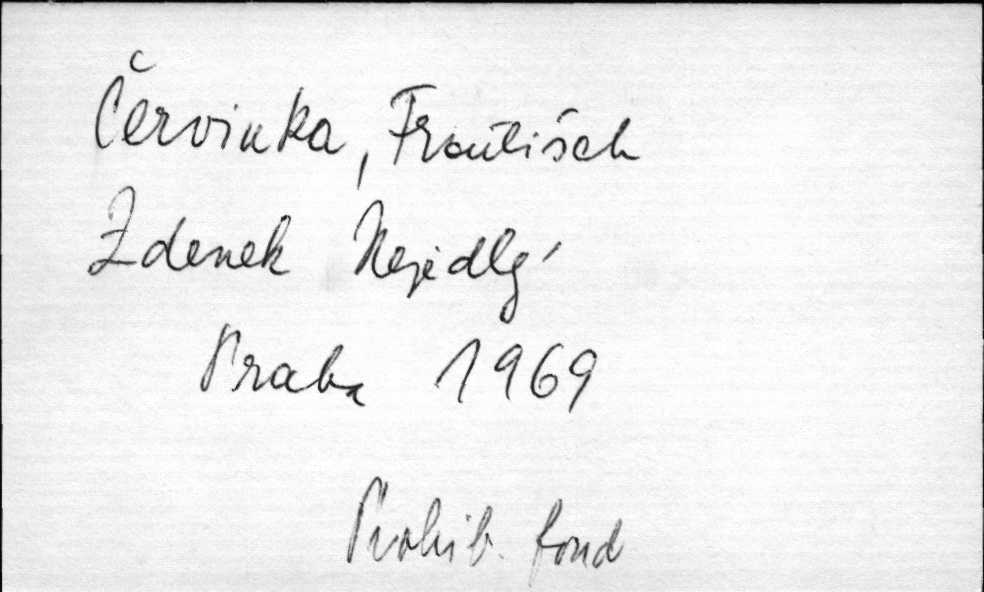 Červinka, František
Zdenek Nejedlý
Praha 1969
Prohib. fond